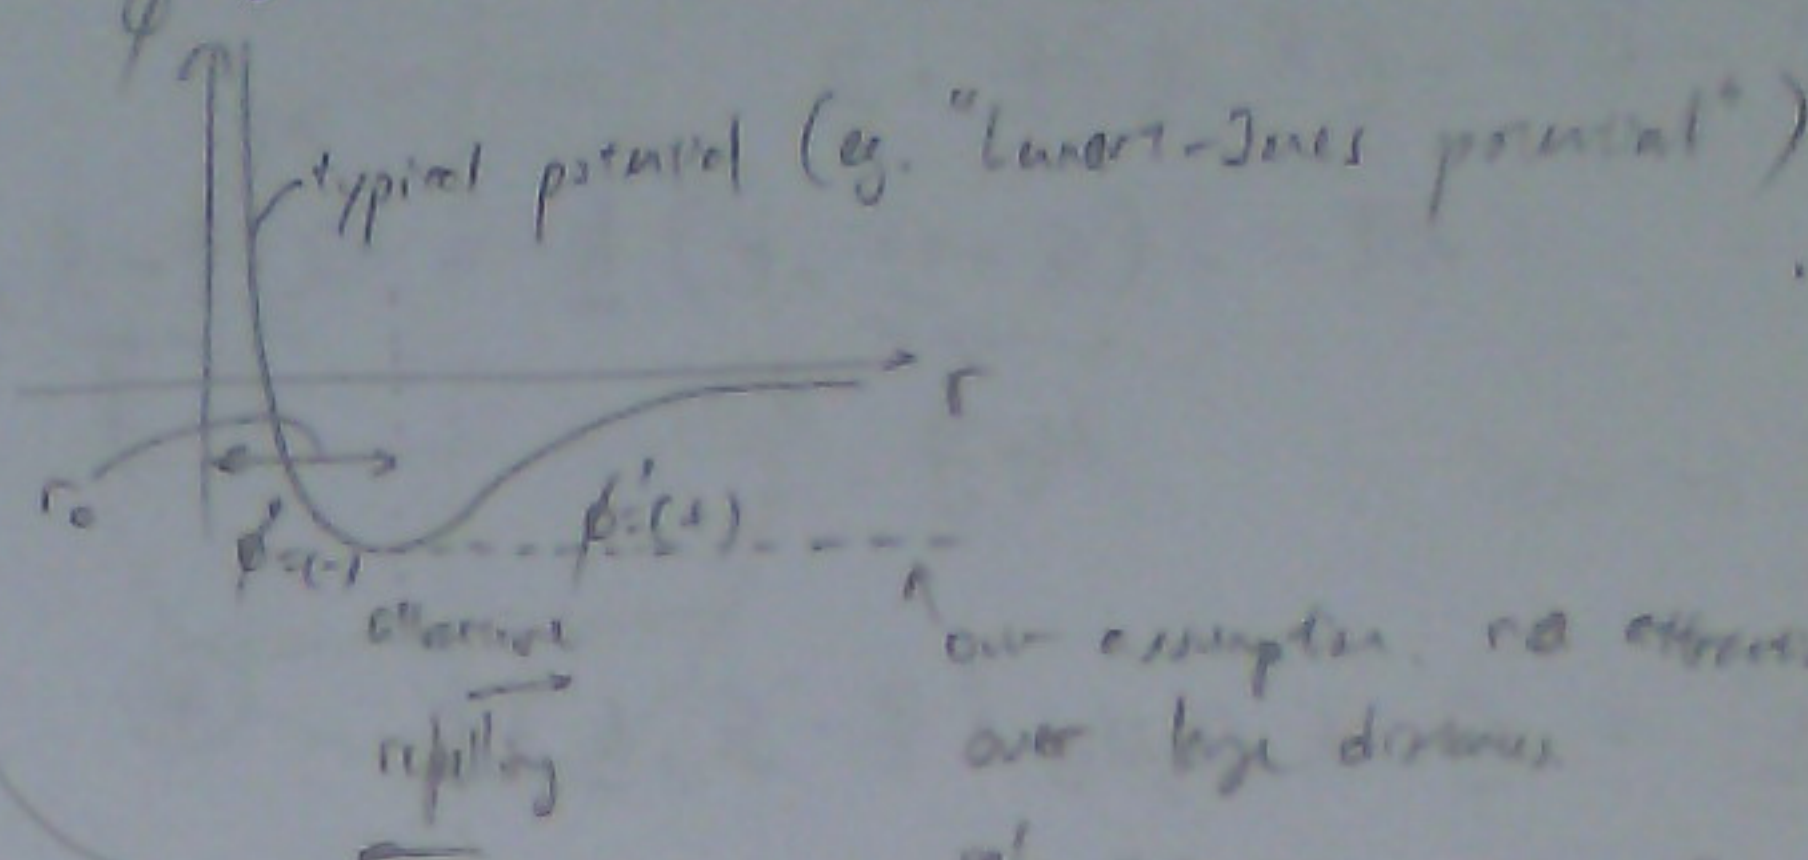 φ
typical potential (eg. "Lennart-Jones potential")
r
r₀
φ'=(-)
φ'=(+)
attractive
our assumption. no
repelling
over large distances